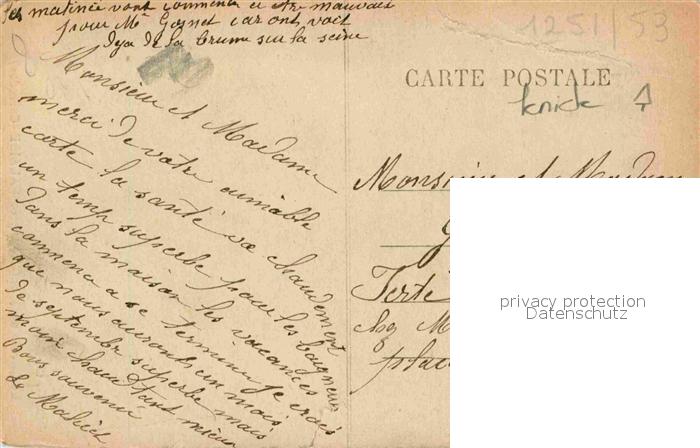 les matinée vont commencé a etre mauvais
pour Mr Gosnet car ont voit
deja de la brume sur la seine
1251/53
CARTE POSTALE
Monsieur et Madame
merci de votre aimable
carte la santé va
un temp superbe pour les baigneurs
dans la maison les vacances
commence a se terminer je crois
que nous aurons un mois
de septembre superbe mais
moin chaud tant mieux
Bons souvenir
Monsieur et Madame
Ferté
chez M
place
privacy protection
Datenschutz